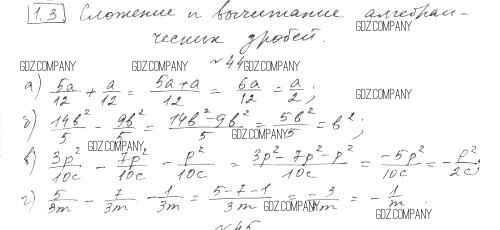 1.3 Сложение и вычитание алгебраи-
GDZ.COMPANY
ческих дробей.
GDZ.COMPANY GDZ.COMPANY № 44 GDZ.COMPANY
а) 5a/12 + a/12 = (5a+a)/12 = 6a/12 = a/2;
GDZ.COMPANY
б) 14b²/5 - 9b²/5 = (14b²-9b²)/5 = 5b²/5 = b²;
GDZ.COMPANY GDZ.COMPANY
в) 3p²/10c - 7p²/10c - p²/10c = (3p²-7p²-p²)/10c = -5p²/10c = -p²/2c;
GDZ.COMPANY
г) 5/3m - 7/3m - 1/3m = (5-7-1)/3m = -3/3m = -1/m.
GDZ.COMPANY GDZ.COMPANY
№ 45